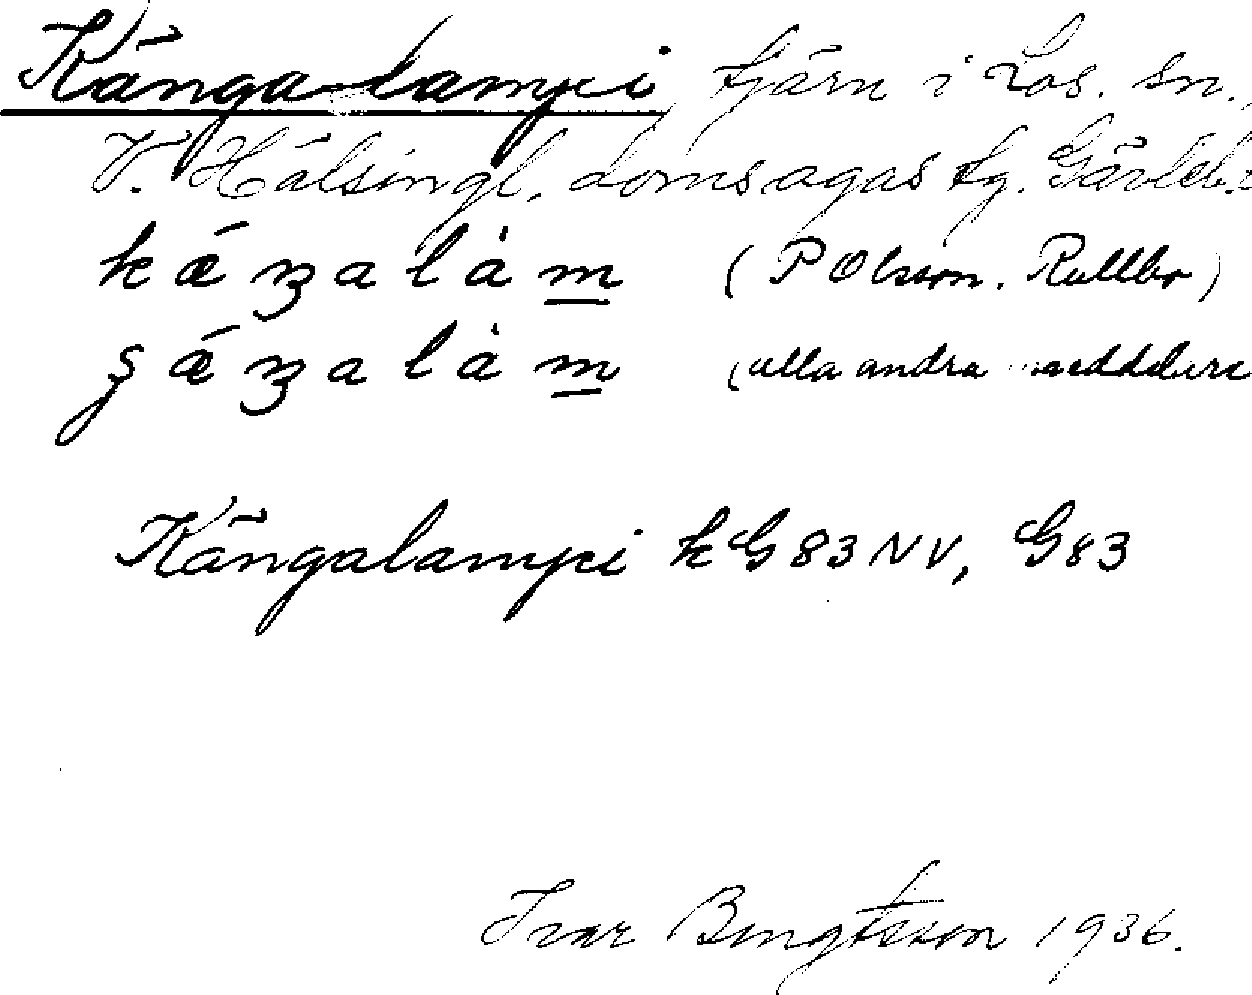 Känga-lampi tjärn i Los. sn.,
V. Hälsingl. domsagas tg. Gävleb.
kǽŋalàm (P Olsson. Rullbo)
ɡǽŋalàm (alla andra meddelare
Kängalampi kG83NV, G83
Ivar Bengtsson 1936.